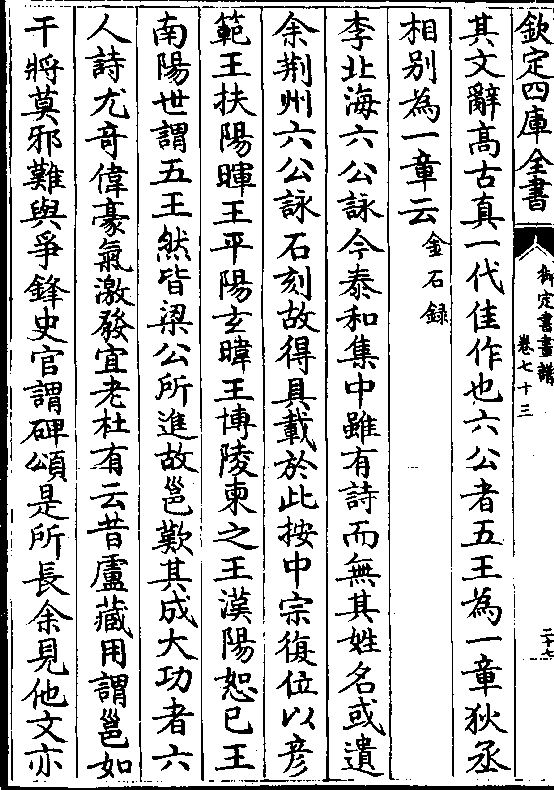 欽定四庫全書
御定書畫譜
卷七十三
二十七
其文辭高古真一代佳作也六公者五王為一章狄丞
相别為一章云金石録
李北海六公詠今泰和集中雖有詩而無其姓名或遺
余荆州六公詠石刻故得具載於此按中宗復位以彦
範王扶陽暉王平陽玄暐王博陵柬之王漢陽恕已王
南陽世謂五王然皆梁公所進故邕歎其成大功者六
人詩尤奇偉豪氣激發宜老杜有云昔盧藏用謂邕如
干將莫邪難與爭鋒史官謂碑頌是所長余見他文亦